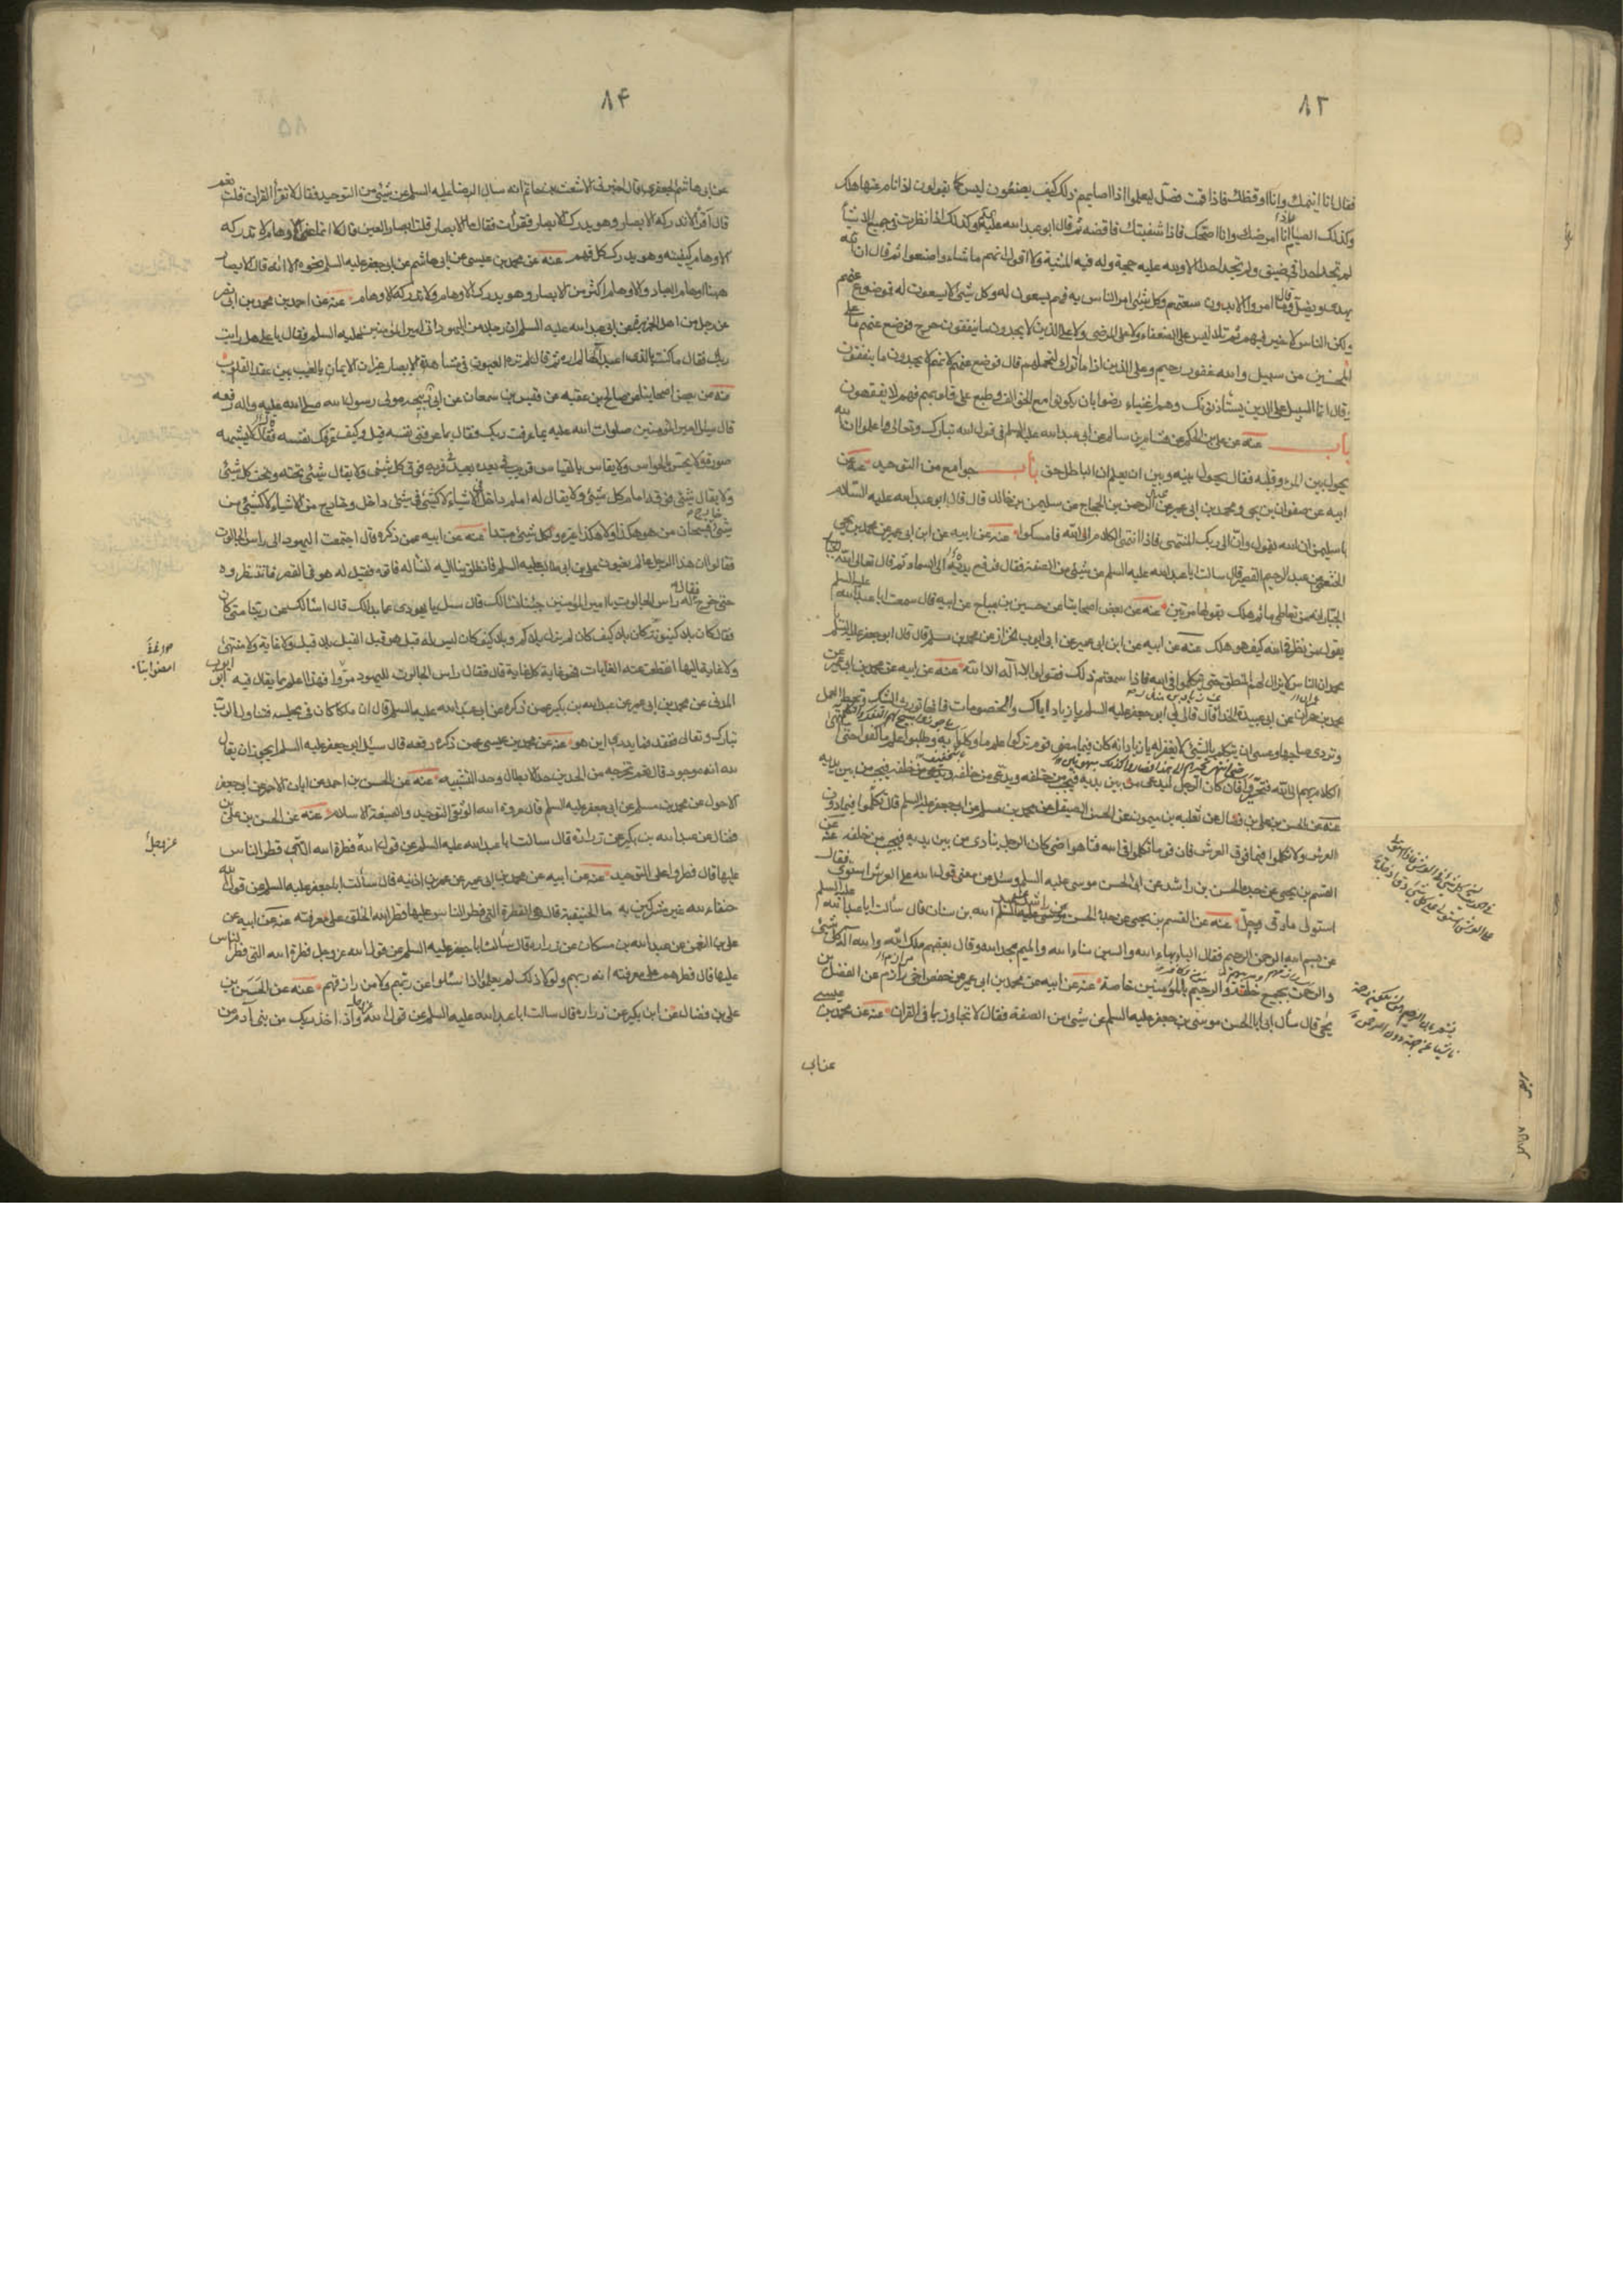 ٨٢
فقال انا انيمك وانا اوقظك فاذا قمت فصل ليعلموا اذا اصابهم ذلك كيف يصنعون ليس كما يقولون اذا نام عنها هلك
وكذلك الصيام انا امرضك وانا اصحك فاذا شفيتك فاقضه ثم قال ابو عبد الله عليه السلم وكذلك اذا نظرت في جميع الاشياء
لم تجد احدا في ضيق ولم تجد احدا الا ولله عليه حجة وله فيه المشية ولا اقول انهم ما شاء وا صنعوا ثم قال ان الله
يهدى ويضل وقال ما امروا الا بدون سعتهم وكل شيئ امر الناس به فهم يسعون له وكل شيئ لا يسعون له فموضوع عنهم
ولكن الناس لا خير فيهم ثم تلا ليس على الضعفاء ولا على المرضى ولا على الذين لا يجدون ما ينفقون حرج فوضع عنهم ما على
المحسنين من سبيل والله غفور رحيم ولا على الذين اذا ما اتوك لتحملهم قال فوضع عنهم لانهم لا يجدون ما ينفقون
وقال انما السبيل على الذين يستأذنونك وهم اغنياء رضوا بان يكونوا مع الخوالف وطبع على قلوبهم فهم لا يفقهون
باب عنه عن على بن الحكم عن هشام بن سالم عن ابى عبد الله عليه السلم في قول الله تبارك وتعالى واعلموا ان الله
يحول بين المرء وقلبه فقال يحول بينه وبين ان يعلم ان الباطل حق باب جوامع من التوحيد عنه عن
ابيه عن صفوان بن يحيى ومحمد بن ابى عمير عن عبد الرحمن بن الحجاج عن سليمن بن خالد قال قال ابو عبد الله عليه السلام
يا سليمن ان الله يقول وان الى ربك المنتهى فاذا انتهى الكلام الى الله فامسكوا عنه عن ابيه عن ابن ابى عمير عن محمد بن يحيى
الخثعمى عن عبد الرحيم القصير قال سالت ابا عبد الله عليه السلم عن شيئ من الصفة فقال فرفع يديه الى السماء ثم قال تعالى الله
الجبار انه من تعاطى ما ثم هلك يقولها مرتين عنه عن بعض اصحابنا عن حسين بن مياح عن ابيه قال سمعت ابا عبد الله عليه السلم
يقول من نظر في الله كيف هو هلك عنه عن ابيه عن ابن ابى عمير عن ابى ايوب الخزاز عن محمد بن مسلم قال قال ابو جعفر عليه السلم
يا محمد ان الناس لا يزال لهم المنطق حتى يتكلموا في الله فاذا سمعتم ذلك فقولوا لا اله الا الله عنه عن ابيه عن محمد بن ابى عمير عن
محمد بن حمران عن ابى عبيدة الحذاء قال قال لى ابو جعفر عليه السلم يا زياد اياك والخصومات فانها تورث الشك وتحبط العمل
وتردى صاحبها وعسى ان يتكلم بالشيئ لا يغفر له يا زياد انه كان فيما مضى قوم تركوا علم ما وكلوا به وطلبوا علم ما كفوا حتى انتهى
الكلام بهم الى الله فتحيروا فان كان الرجل ليدعى من بين يديه فيجيب من خلفه ويدعى من خلفه فيجيب من بين يديه
عنه عن الحسن بن على بن فضال عن ثعلبة بن ميمون عن الحسن الصيقل عن محمد بن مسلم عن ابى جعفر عليه السلم قال تكلموا فيما دون
العرش ولا تكلموا فيما فوق العرش فان قوما تكلموا في الله فتاهوا حتى كان الرجل ينادى من بين يديه فيجيب من خلفه عنه عن
القسم بن يحيى عن جده الحسن بن راشد عن ابى الحسن موسى عليه السلم وسئل عن معنى قول الله على العرش استوى فقال
استولى على ما دق وجل عنه عن القسم بن يحيى عن جده الحسن عن عبد الله بن سنان قال سألت ابا عبد الله عليه السلم
عن بسم الله الرحمن الرحيم فقال الباء بهاء الله والسين سناء الله والميم مجد الله وقال بعضهم ملك الله والله اله كل شيئ
والرحمن بجميع خلقه والرحيم بالمؤمنين خاصة عنه عن ابيه عن محمد بن ابى عمير عن حفص اخى مرازم عن الفضل بن
يحيى قال سأل ابى ابا الحسن موسى بن جعفر عليه السلم عن شيئ من الصفة فقال لا تجاوز ما في القران عنه عن محمد بن عيسى
عن ابى
٨۴
عن ابى هاشم الجعفرى قال اخبرنى الاشعث بن حاتم انه سال الرضا عليه السلم عن شيئ من التوحيد فقال الا تقرأ القران قلت نعم
قال اقرأ لا تدركه الابصار وهو يدرك الابصار فقرأت فقال ما الابصار قلت ابصار العين قال لا انما عنى الاوهام لا تدركه
الاوهام كيفيته وهو يدرك كل فهم عنه عن محمد بن عيسى عن ابى هاشم عن ابى جعفر عليه السلم نحوه الا انه قال الابصار
ههنا اوهام العباد والاوهام اكثر من الابصار وهو يدرك الاوهام ولا تدركه الاوهام عنه عن احمد بن محمد بن ابى نصر
عن رجل من اهل الجزيرة عن ابى عبد الله عليه السلم ان رجلا من اليهود اتى امير المؤمنين عليه السلم فقال يا على هل رايت
ربك فقال ما كنت بالذى اعبد الها لم اره ثم قال لم تره العيون في مشاهدة الابصار غير ان الايمان بالغيب بين عقد القلوب
عنه عن بعض اصحابنا عن صالح بن عقبه عن قيس بن سمعان عن ابى ربيحة مولى رسول الله صلى الله عليه واله رفعه
قال سئل امير المؤمنين صلوات الله عليه بما عرفت ربك فقال بما عرفنى نفسه قيل وكيف عرفك نفسه فقال لا يشبهه
صورة ولا يحس بالحواس ولا يقاس بالقياس قريب في بعده بعيد في قربه فوق كل شيئ ولا يقال شيئ تحته وتحت كل شيئ
ولا يقال شيئ فوقه امام كل شيئ ولا يقال له امام داخل في الاشياء لا كشيئ في شيئ داخل وخارج من الاشياء لا كشيئ من
شيئ خارج فسبحان من هو هكذا ولا هكذا غيره ولكل شيئ مبتدا عنه عن ابيه عمن ذكره قال اجتمعت اليهود الى راس الجالوت
فقالوا ان هذا الرجل عالم يعنون على بن ابى طالب عليه السلم فانطلق بنا اليه لنساله فاتوه فقيل له هو في القصر فانتظروه
حتى خرج فقال له راس الجالوت يا امير المؤمنين جئنا نسالك قال سل يا يهودى عما بدا لك قال اسالك عن ربنا متى كان
فقال كان بلا كينونة كان بلا كيف كان لم يزل بلا كم وبلا كيف كان ليس له قبل هو قبل القبل بلا قبل ولا غاية ولا منتهى
ولا غاية اليها انقطعت عنه الغايات فهو غاية كل غاية قال فقال راس الجالوت لليهود مروا فهذا اعلم بما يقال فيه ابو ايوب
المدنى عن محمد بن ابى عمير عن عبد الله بن بكير عمن ذكره عن ابى عبد الله عليه السلم قال ان ملكا كان في مجلسه فتناول الرب
تبارك وتعالى ففقد فما يدرى اين هو عنه عن محمد بن عيسى عمن ذكره رفعه قال سئل ابو جعفر عليه السلم ايجوز ان يقال
لله انه موجود قال نعم تخرجه من الحدين حد الابطال وحد التشبيه عنه عن الحسن بن احمد عن ابان الاحمر عن ابى جعفر
الاحول عن محمد بن مسلم عن ابى جعفر عليه السلم قال عروة الله الوثقى التوحيد والصبغة الاسلام عنه عن الحسن بن على بن
فضال عن عبد الله بن بكير عن زرارة قال سالت ابا عبد الله عليه السلم عن قول الله فطرة الله التى فطر الناس
عليها قال فطروا على التوحيد عنه عن ابيه عن محمد بن ابى عمير عن عمر بن اذينه قال سألت ابا جعفر عليه السلم عن قول الله
حنفاء لله غير مشركين به ما الحنيفية قال هى الفطرة التى فطر الناس عليها فطر الله الخلق على معرفته عنه عن ابيه عن
على بن النعمن عن عبد الله بن مسكان عن زرارة قال سألت ابا جعفر عليه السلم عن قول الله عز وجل فطرة الله التى فطر الناس
عليها قال فطرهم على معرفته انه ربهم ولولا ذلك لم يعلموا اذا سئلوا من ربهم ولا من رازقهم عنه عن الحسن بن
على بن فضال عن ابن بكير عن زرارة قال سالت ابا عبد الله عليه السلم عن قول الله عز وجل واذ اخذ ربك من بنى ادم من
عز وجل